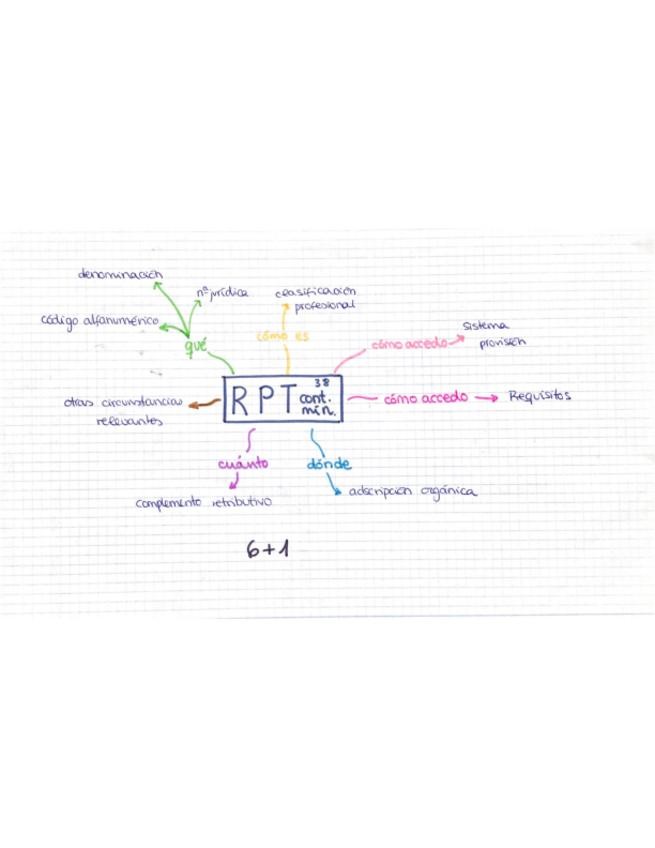 denominación
nª jurídica
clasificación
profesional
código alfanumérico
qué
cómo es
cómo accedo
Sistema
provisión
RPT
38
cont.
mín.
cómo accedo
Requisitos
otras circunstancias
relevantes
cuánto
dónde
complemento retributivo
adscripción orgánica
6+1